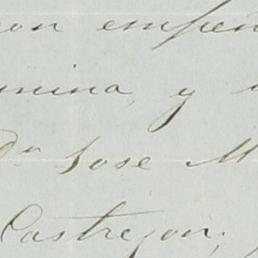 con empeñ
mina, y
Dn Jose M
Castrejon;